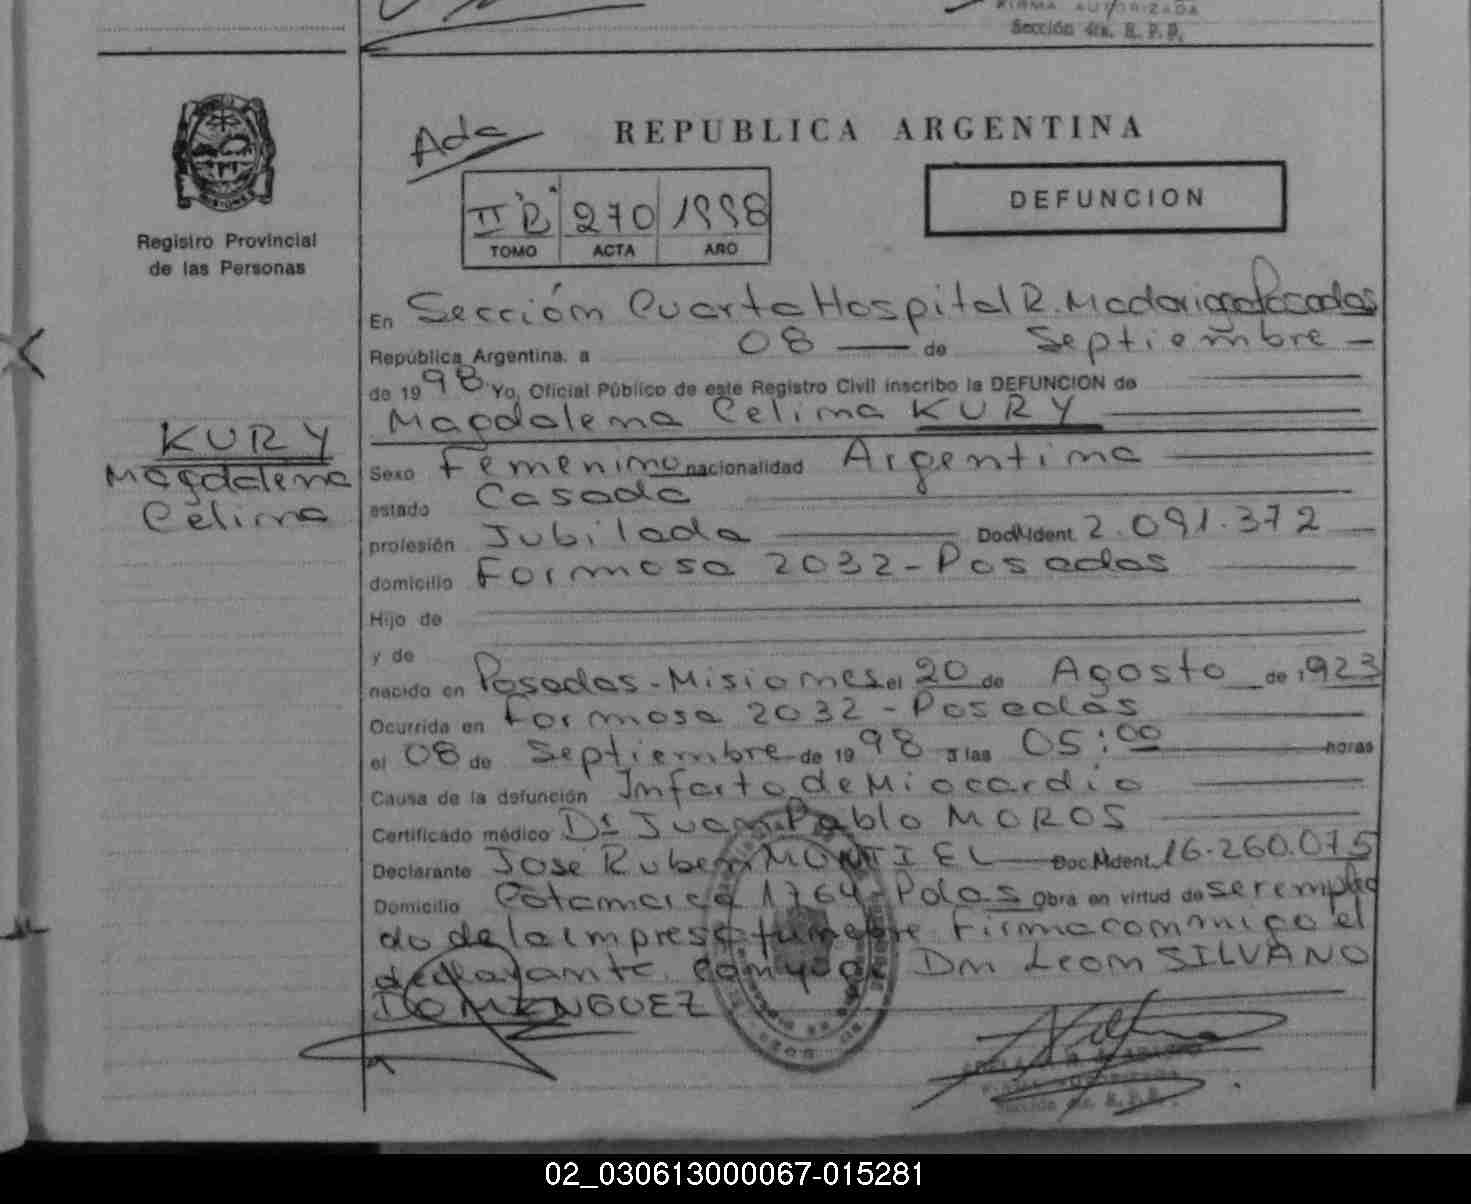 FIRMA AUTORIZADA
Sección 4ta. R. P. P.
Registro Provincial
de las Personas
KURY
Magdalena
Celina
Ada
REPUBLICA ARGENTINA
DEFUNCION
II "B" 270 1998
TOMO ACTA AÑO
En Sección Cuarta Hospital R. Madariaga Posadas
República Argentina, a 08 de Septiembre
de 1998 Yo, Oficial Público de este Registro Civil inscribo la DEFUNCION de
Magdalena Celina KURY
Sexo Femenino nacionalidad Argentina
estado Casada
profesión Jubilada Doc. Ident. 2.091.372
domicilio Formosa 2032 - Posadas
Hijo de
y de
nacido en Posadas - Misiones el 20 de Agosto de 1923
Ocurrida en Formosa 2032 - Posadas
el 08 de Septiembre de 1998 a las 05:00 horas
Causa de la defunción Infarto de Miocardio
Certificado médico Dr Juan Pablo MOROS
Declarante José Ruben MONTIEL Doc. Ident. 16.260.075
Domicilio Catamarca 1764 - Pdas Obra en virtud de ser emplea
do de la empresa funebre firma conmigo el
declarante conyuge Dn Leon SILVANO
DOMINGUEZ
FIRMA AUTORIZADA
Sección 4ta. R. P. P.
02_030613000067-015281